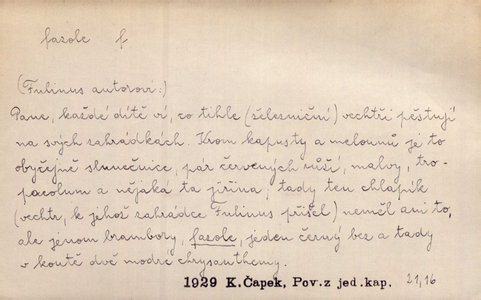 fazole f
(Fulinus autorovi:)
Pane, každé dítě ví, co tihle (železniční) vechtři pěstují
na svých zahrádkách. Krom kapusty a melounů je to
obyčejně slunečnice, pár červených růží, malvy, tro-
paeolum a nějaká ta jiřina; tady ten chlapík
(vechtr, k jehož zahrádce Fulinus přišel) neměl ani to,
ale jenom brambory, fazole, jeden černý bez a tady
v koutě dvě modré chrysanthemy.
1929 K.Čapek, Pov.z jed.kap. 21,16